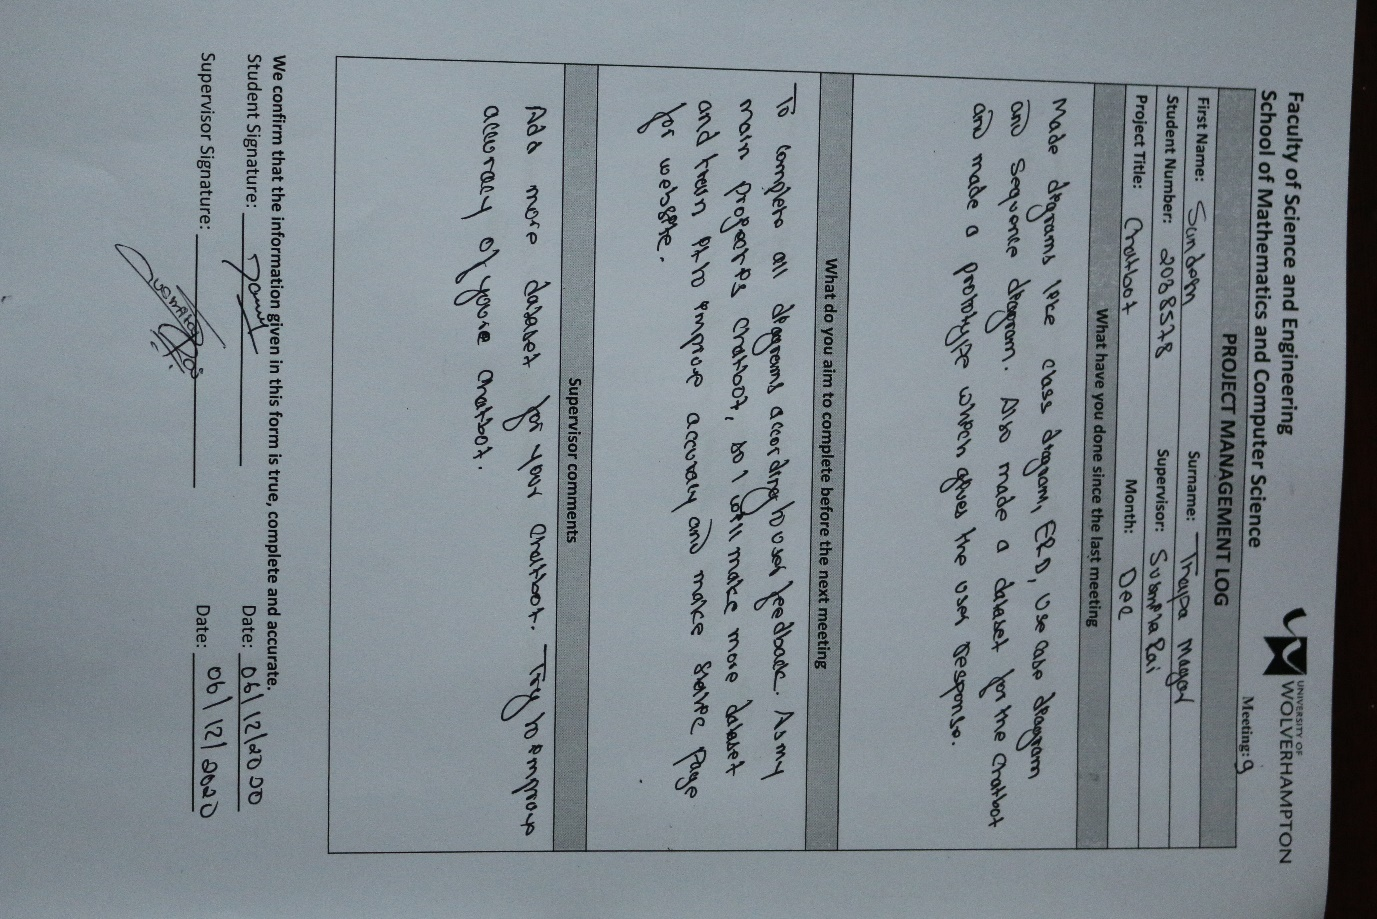 Faculty of Science and Engineering
School of Mathematics and Computer Science
UNIVERSITY OF
WOLVERHAMPTON
Meeting: 9
PROJECT MANAGEMENT LOG
First Name: Sandesh Surname: Thapa Magar
Student Number: 2038578 Supervisor: Subeksha Rai
Project Title: Chatbot Month: Dec
What have you done since the last meeting
Made diagrams like class diagram, ERD, use case diagram
and sequence diagram. Also made a dataset for the chatbot
and made a prototype which gives the user response.
What do you aim to complete before the next meeting
To complete all diagrams according to user feedback. As my
main project is chatbot, so I will make more dataset
and train it to improve accuracy and make static page
for website.
Supervisor comments
Add more dataset for your chatbot. Try to improve
accuracy of your chatbot.
We confirm that the information given in this form is true, complete and accurate.
Student Signature: Date: 06/12/2020
Supervisor Signature: Date: 06/12/2020